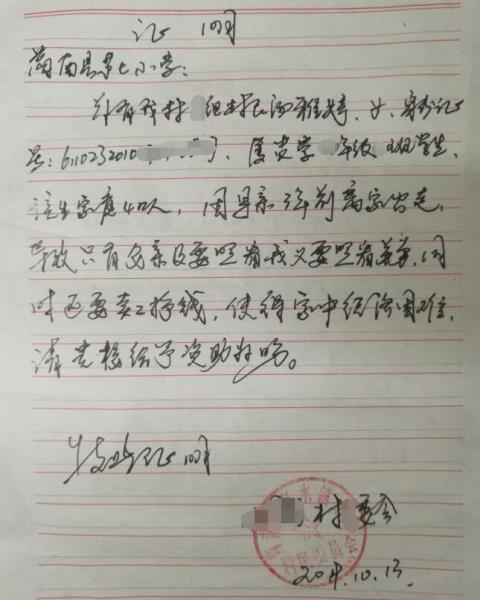 证明
商南县第七小学:
兹有我村 组村民 雅婷、女、身份证
号: 6110232010 、属贵学 年级 班学生,
该生家庭4口人, 因母亲 年前离家出走,
导致只有父亲既要照看 又要照看 ,同
时还要卖工挣钱,使得家中经济困难,
请贵校给予资助为盼。
特此证明
村委会
水镇
村民委员会
10.13